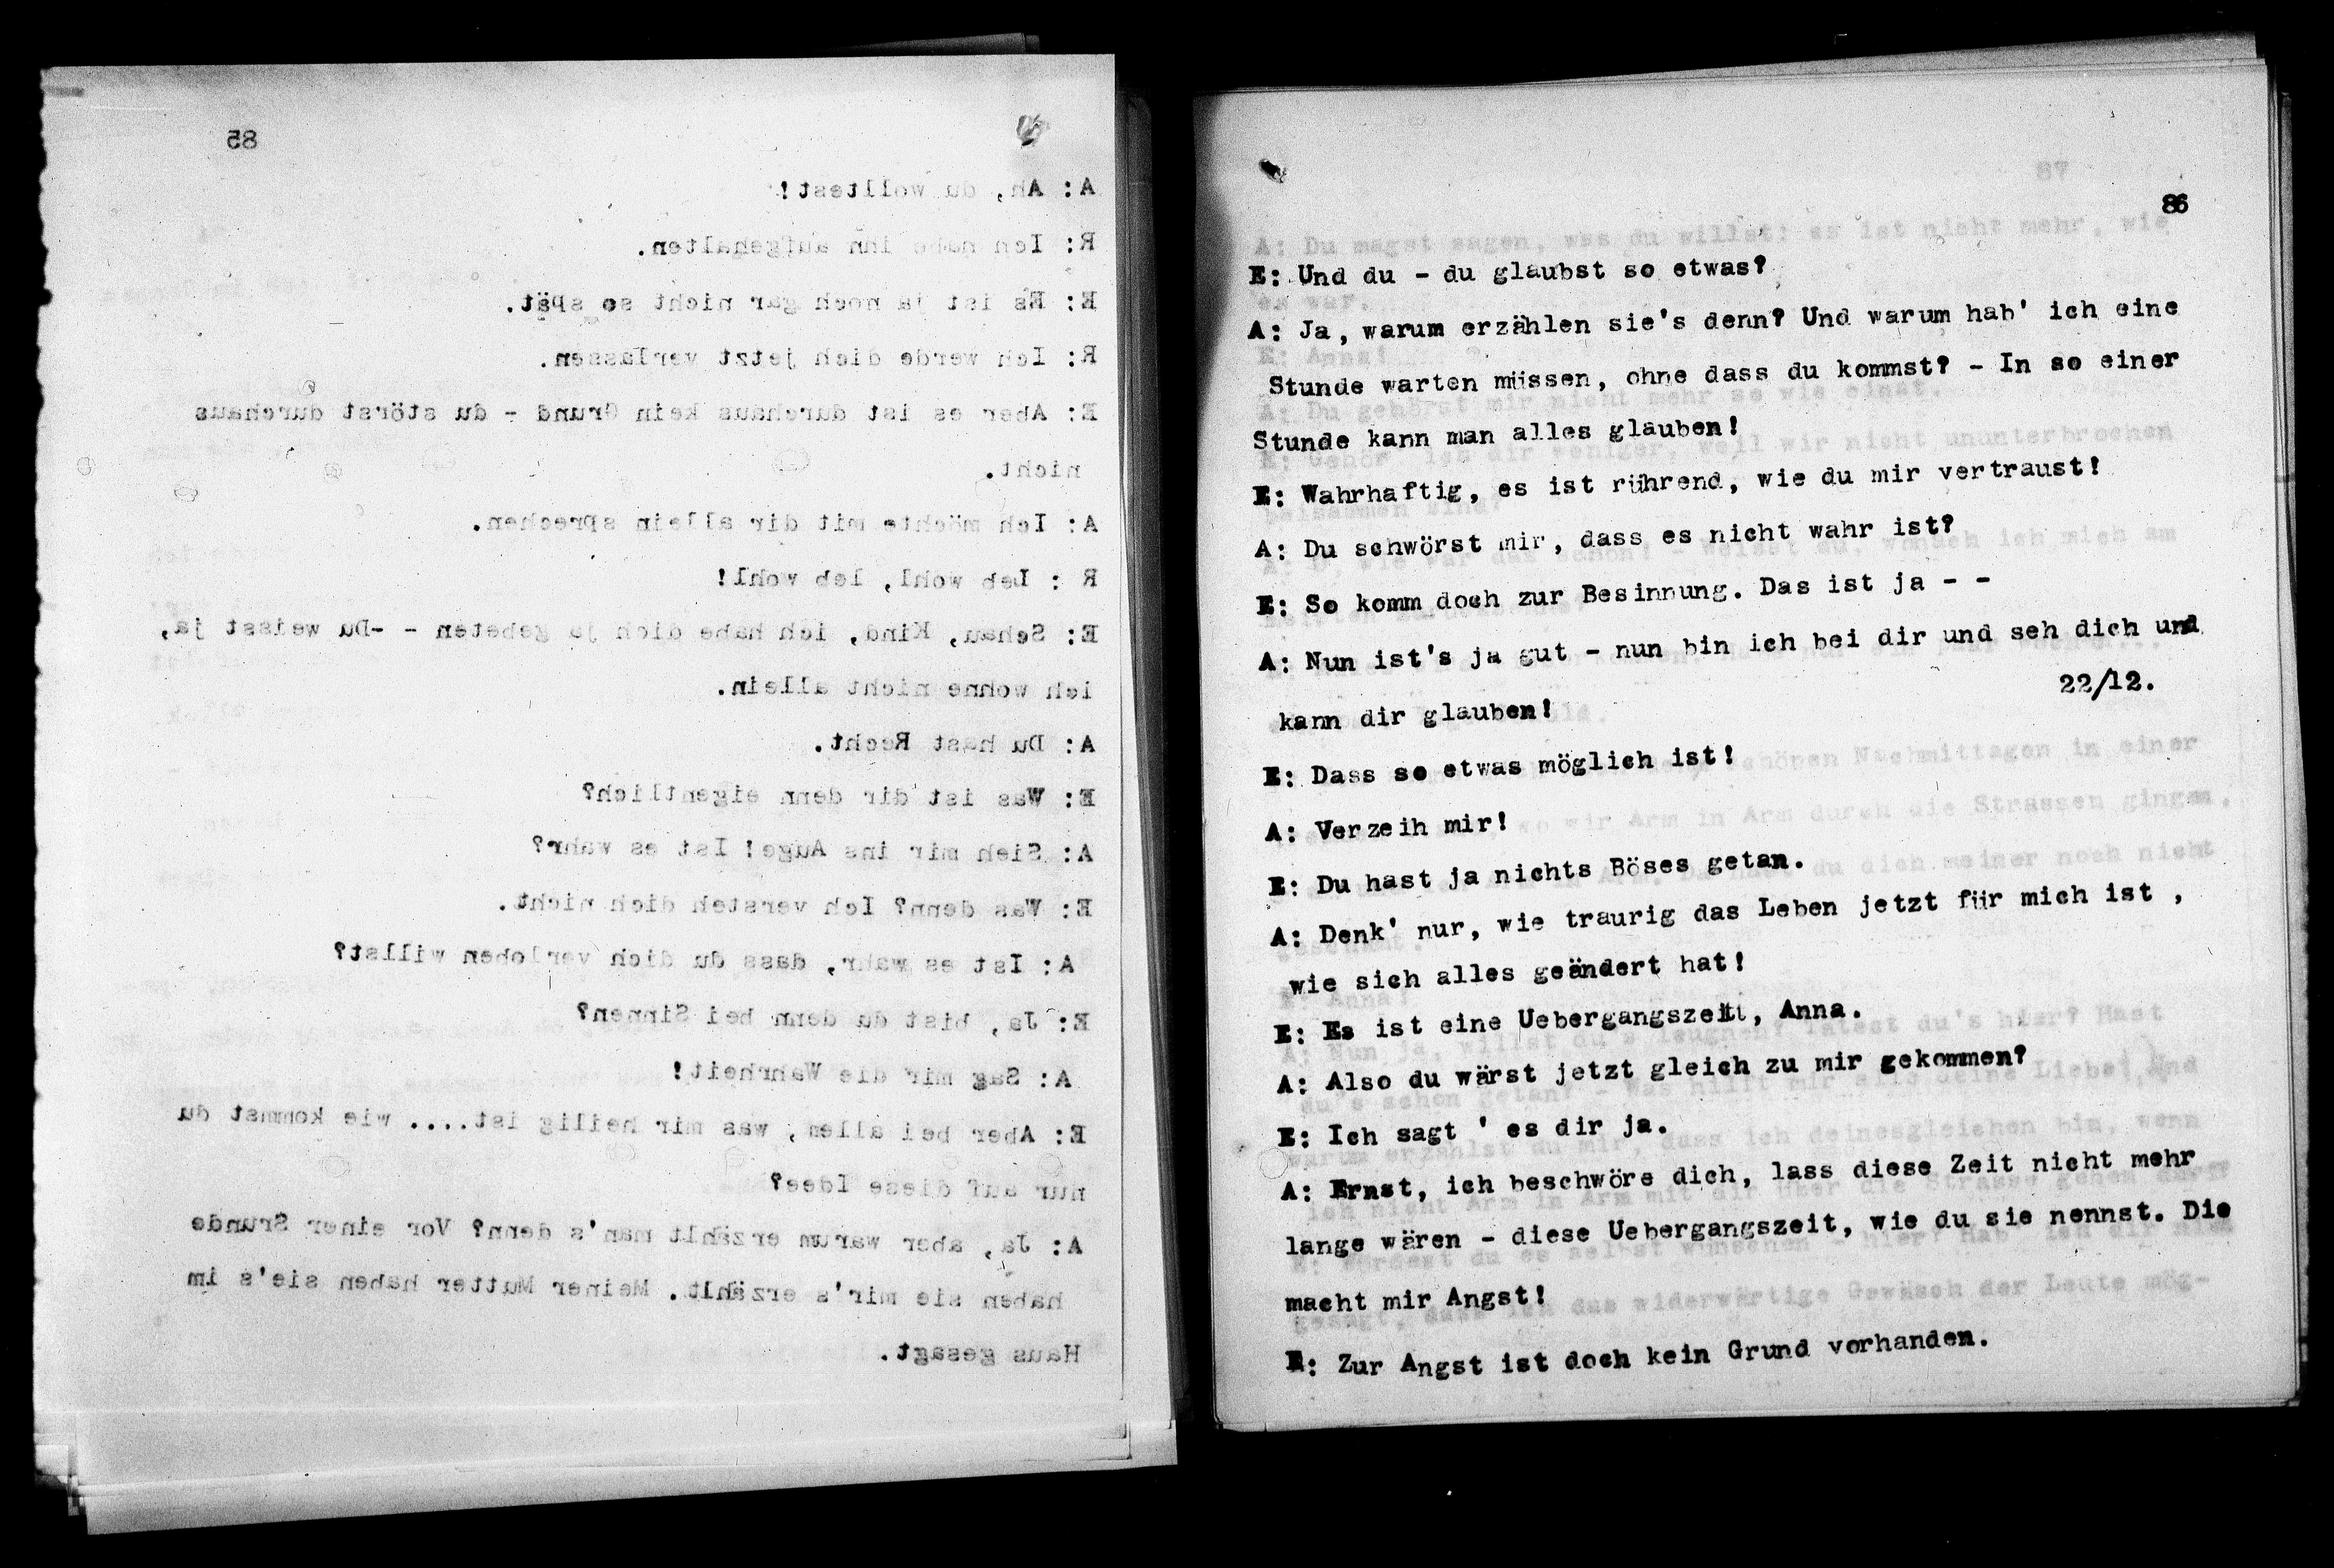 85
A: Ah, du wolltest!
R: Ich habe ihn aufgehalten.
E: Es ist ja noch gar nicht so spät.
R: Ich werde dich jetzt verlassen.
E: Aber es ist durchaus kein Grund - du störst durchaus
nicht.
A: Ich möchte mit dir allein sprechen.
R : Leb wohl, leb wohl!
E: Schau, Kind, ich habe dich ja gebeten - -Du weisst ja,
ich wohne nicht allein.
A: Du hast Recht.
E: Was ist dir denn eigentlich?
A: Sieh mir ins Auge! Ist es wahr?
E: Was denn? Ich versteh dich nicht.
A: Ist es wahr, dass du dich verloben willst?
E: Ja, bist du denn bei Sinnen?
A: Sag mir die Wahrheit!
E: Aber bei allem, was mir heilig ist.... wie kommst du
nur auf diese Idee?
A: Ja, aber warum erzählt man's denn? Vor einer Srunde
haben sie mir's erzählt. Meiner Mutter haben sie's im
Haus gesagt.
86
E: Und du - du glaubst so etwas?
A: Ja, warum erzählen sie's denn? Und warum hab' ich eine
Stunde warten müssen, ohne dass du kommst? - In so einer
Stunde kann man alles glauben!
E: Wahrhaftig, es ist rührend, wie du mir vertraust!
A: Du schwörst mir, dass es nicht wahr ist?
E: So komm doch zur Besinnung. Das ist ja - -
A: Nun ist's ja gut - nun bin ich bei dir und seh dich und
22/12.
kann dir glauben!
E: Dass so etwas möglich ist!
A: Verzeih mir!
E: Du hast ja nichts Böses getan.
A: Denk' nur, wie traurig das Leben jetzt für mich ist ,
wie sich alles geändert hat!
E: Es ist eine Uebergangszeit, Anna.
A: Also du wärst jetzt gleich zu mir gekommen?
E: Ich sagt ' es dir ja.
A: Ernst, ich beschwöre dich, lass diese Zeit nicht mehr
lange wären - diese Uebergangszeit, wie du sie nennst. Die
macht mir Angst!
E: Zur Angst ist doch kein Grund vorhanden.